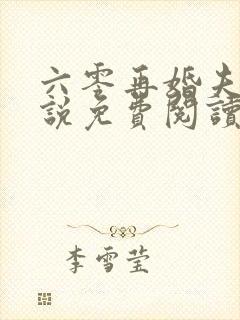 六零再婚夫
說免費閱讀
李雪莹